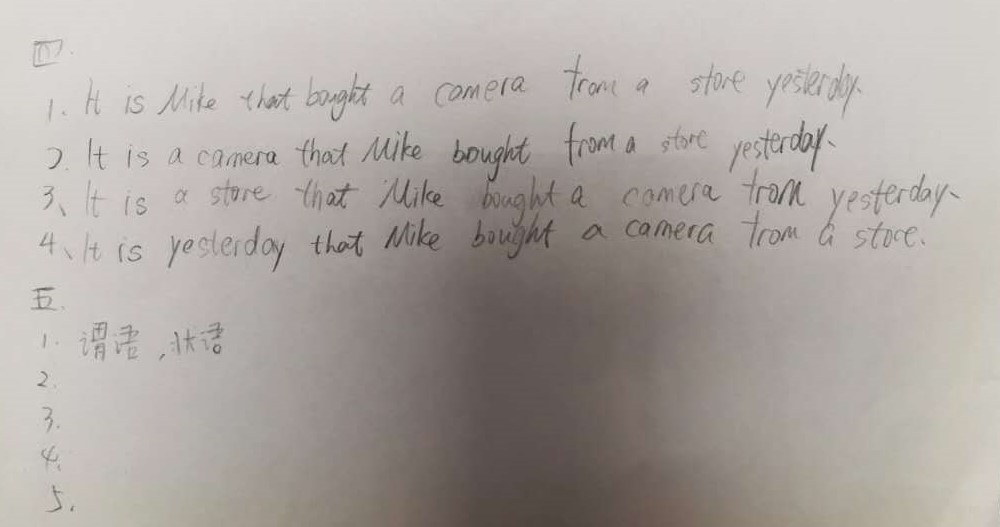 四.
1. It is Mike that bought a camera from a store yesterday.
2. It is a camera that Mike bought from a store yesterday.
3、It is a store that Mike bought a camera from yesterday.
4、It is yesterday that Mike bought a camera from a store.
五.
1. 谓语,状语
2.
3.
4.
5.